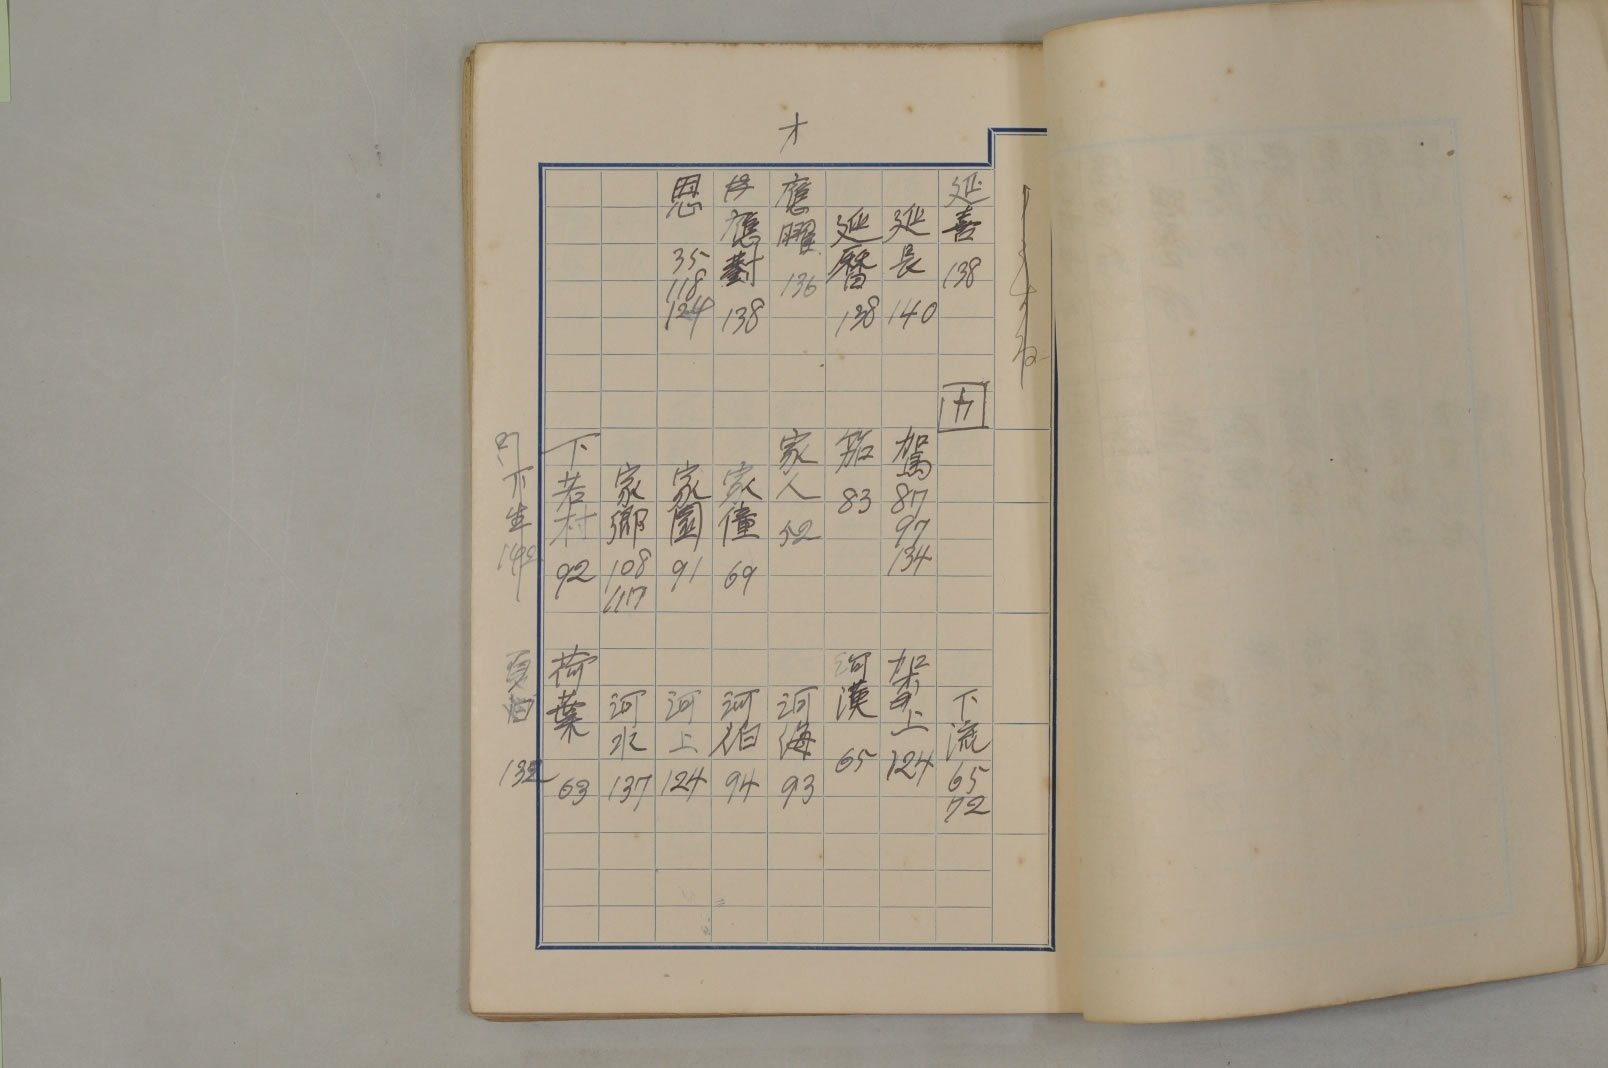 オ
延喜 138
延長 140
延暦 138
應曜 136
應對 138
恩 35 118 124
カ
駕 87 97 134
笳 83
家人 52
家僮 69
家園 91
家郷 108 117
下若村 92
下生 142
下流 65 72
架上 124
河漢 65
河海 93
河伯 94
河上 124
河水 137
荷葉 63
132